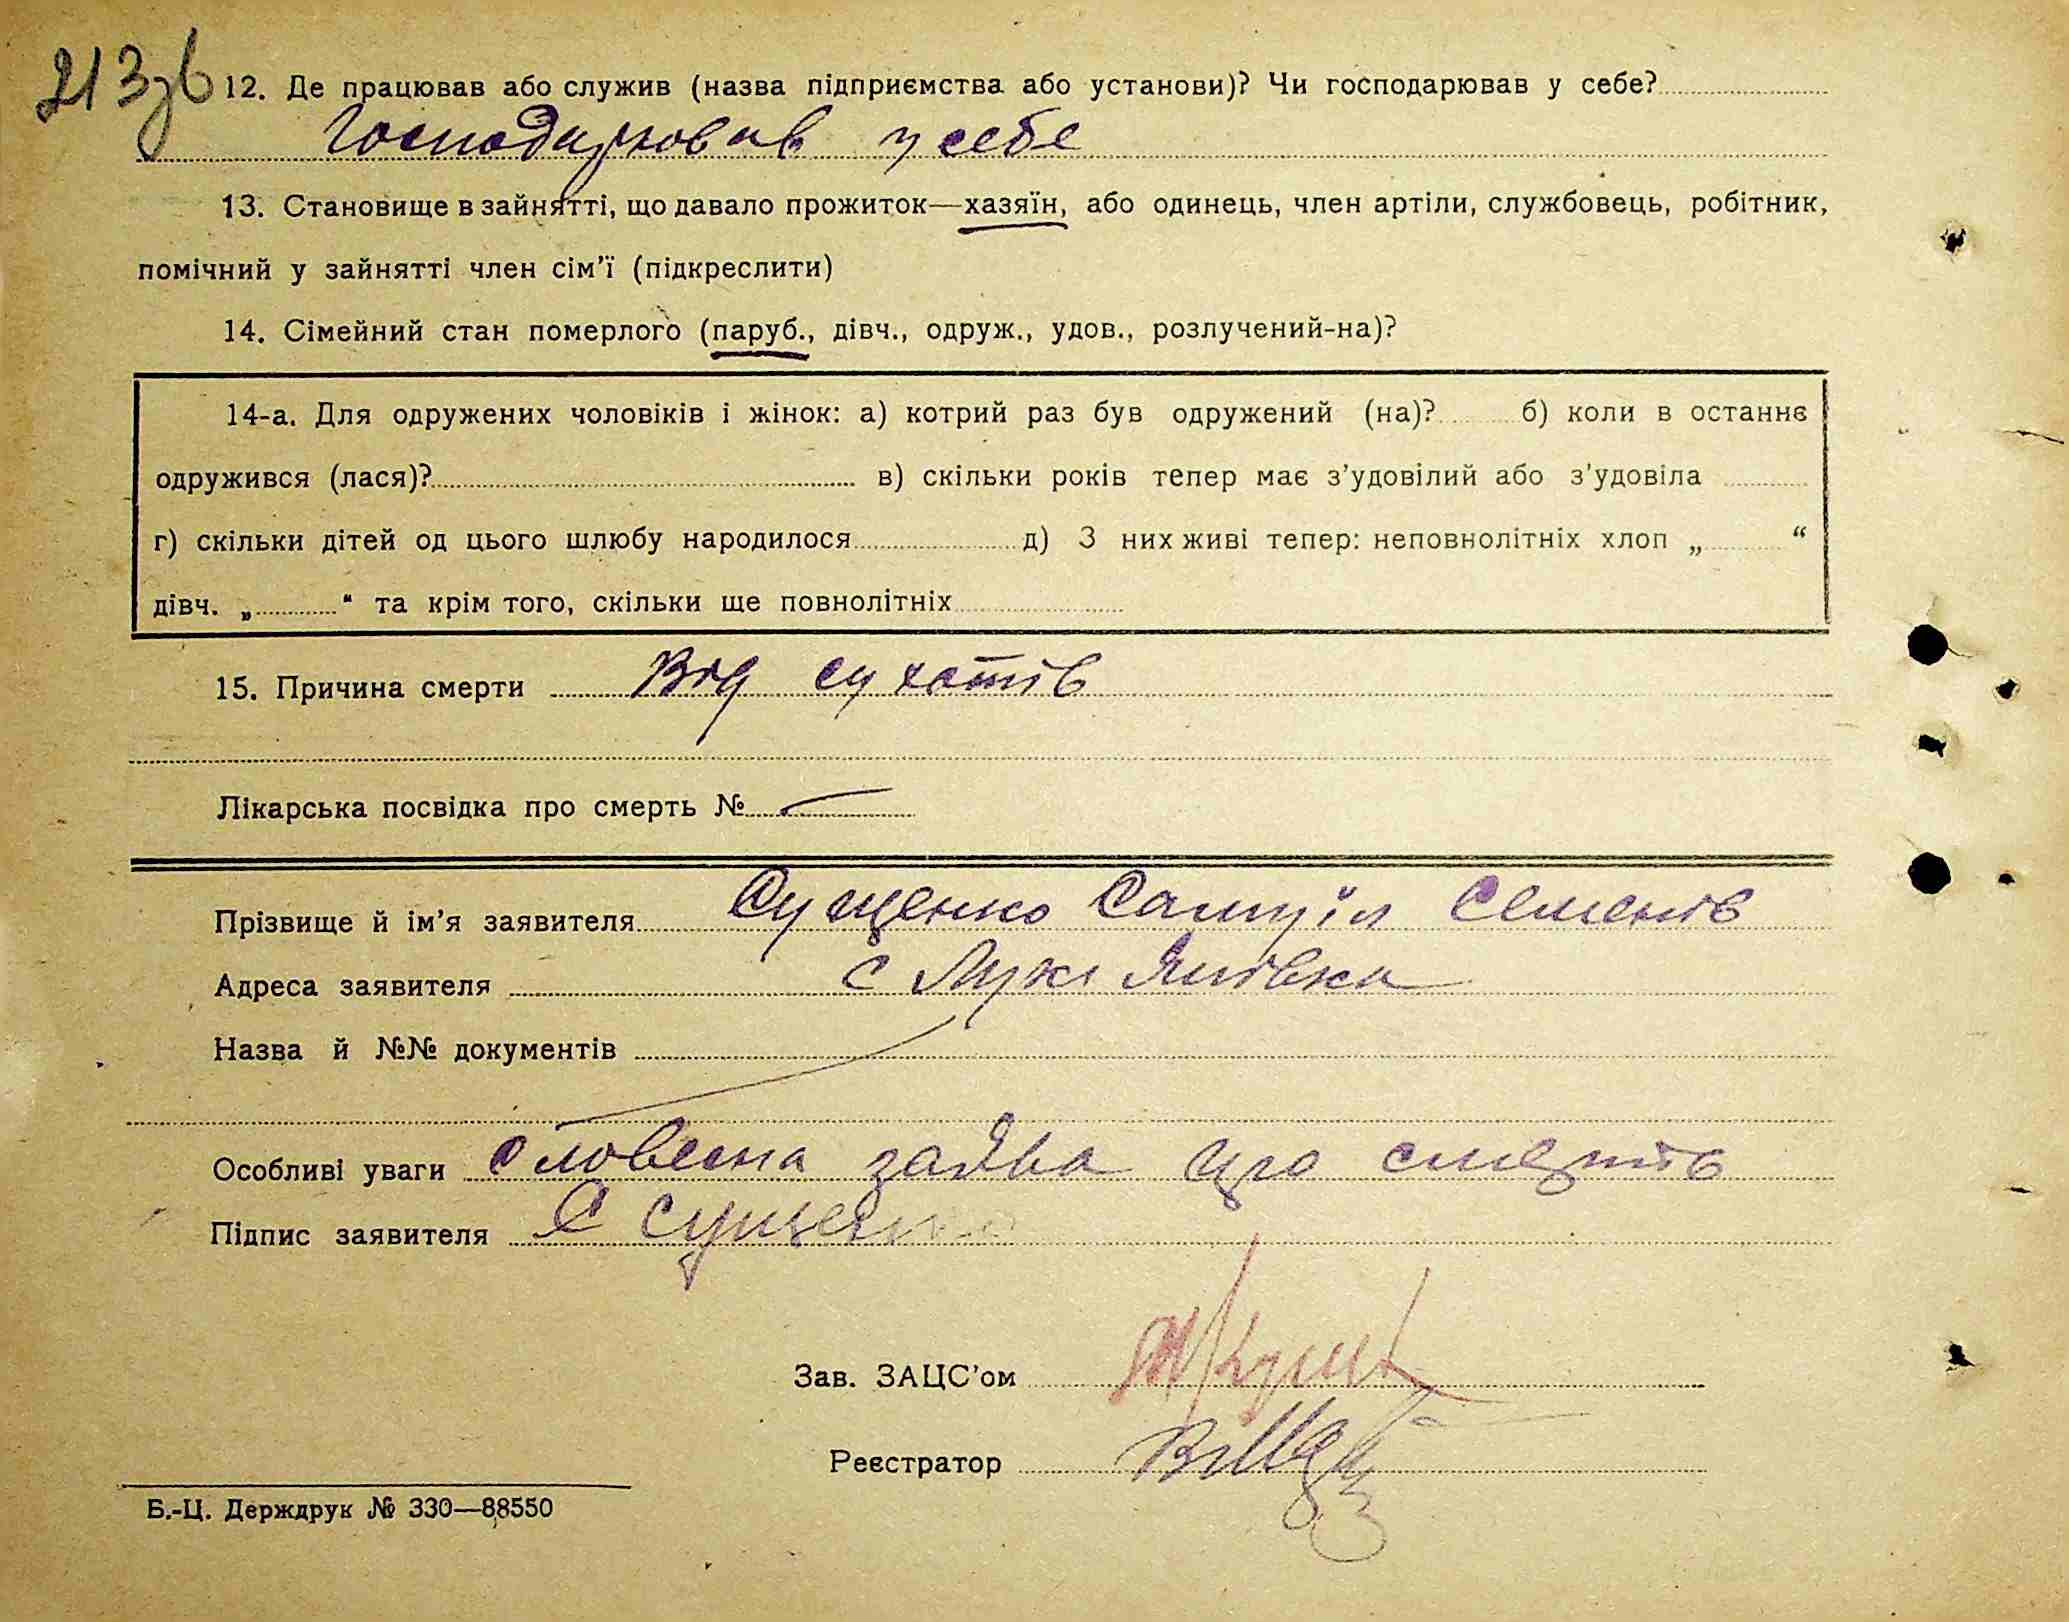 213зв
12. Де працював або служив (назва підприємства або установи)? Чи господарював у себе?
Господарював у себе
13. Становище в зайнятті, що давало прожиток—хазяїн, або одинець, член артіли, службовець, робітник,
помічний у зайнятті член сім'ї (підкреслити)
14. Сімейний стан померлого (паруб., дівч., одруж., удов., розлучений-на)?
14-а. Для одружених чоловіків і жінок: а) котрий раз був одружений (на)? б) коли в останнє
одружився (лася)? в) скільки років тепер має з'удовілий або з'удовіла
г) скільки дітей од цього шлюбу народилося д) З них живі тепер: неповнолітніх хлоп „ “
дівч. „ “ та крім того, скільки ще повнолітніх
15. Причина смерти Від сухотів
Лікарська посвідка про смерть № —
Прізвище й ім'я заявителя Сущенко Самуїл Семенів
Адреса заявителя с Лукʼянівка
Назва й №№ документів
Особливі уваги словесна заява про смерть
Підпис заявителя С Сущенко
Зав. ЗАЦС'ом
Реєстратор
Б.-Ц. Держдрук № 330—88550